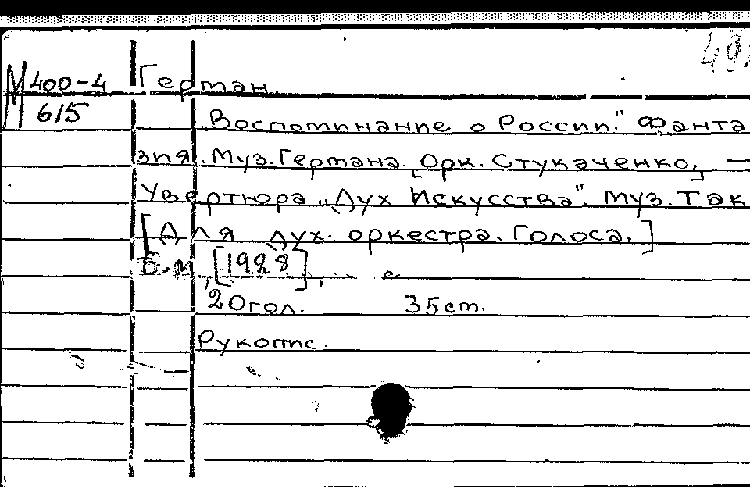 М 400-4 Герман
615
Воспоминание о России." Фанта
зия. Муз. Германа. [Орк. Стукаченко,] —
Увертюра „Дух Искусства". Муз. Так
[Для дух. оркестра. Голоса.]
Б.м., [1928],
20 гол. 35 cm.
Рукопис.